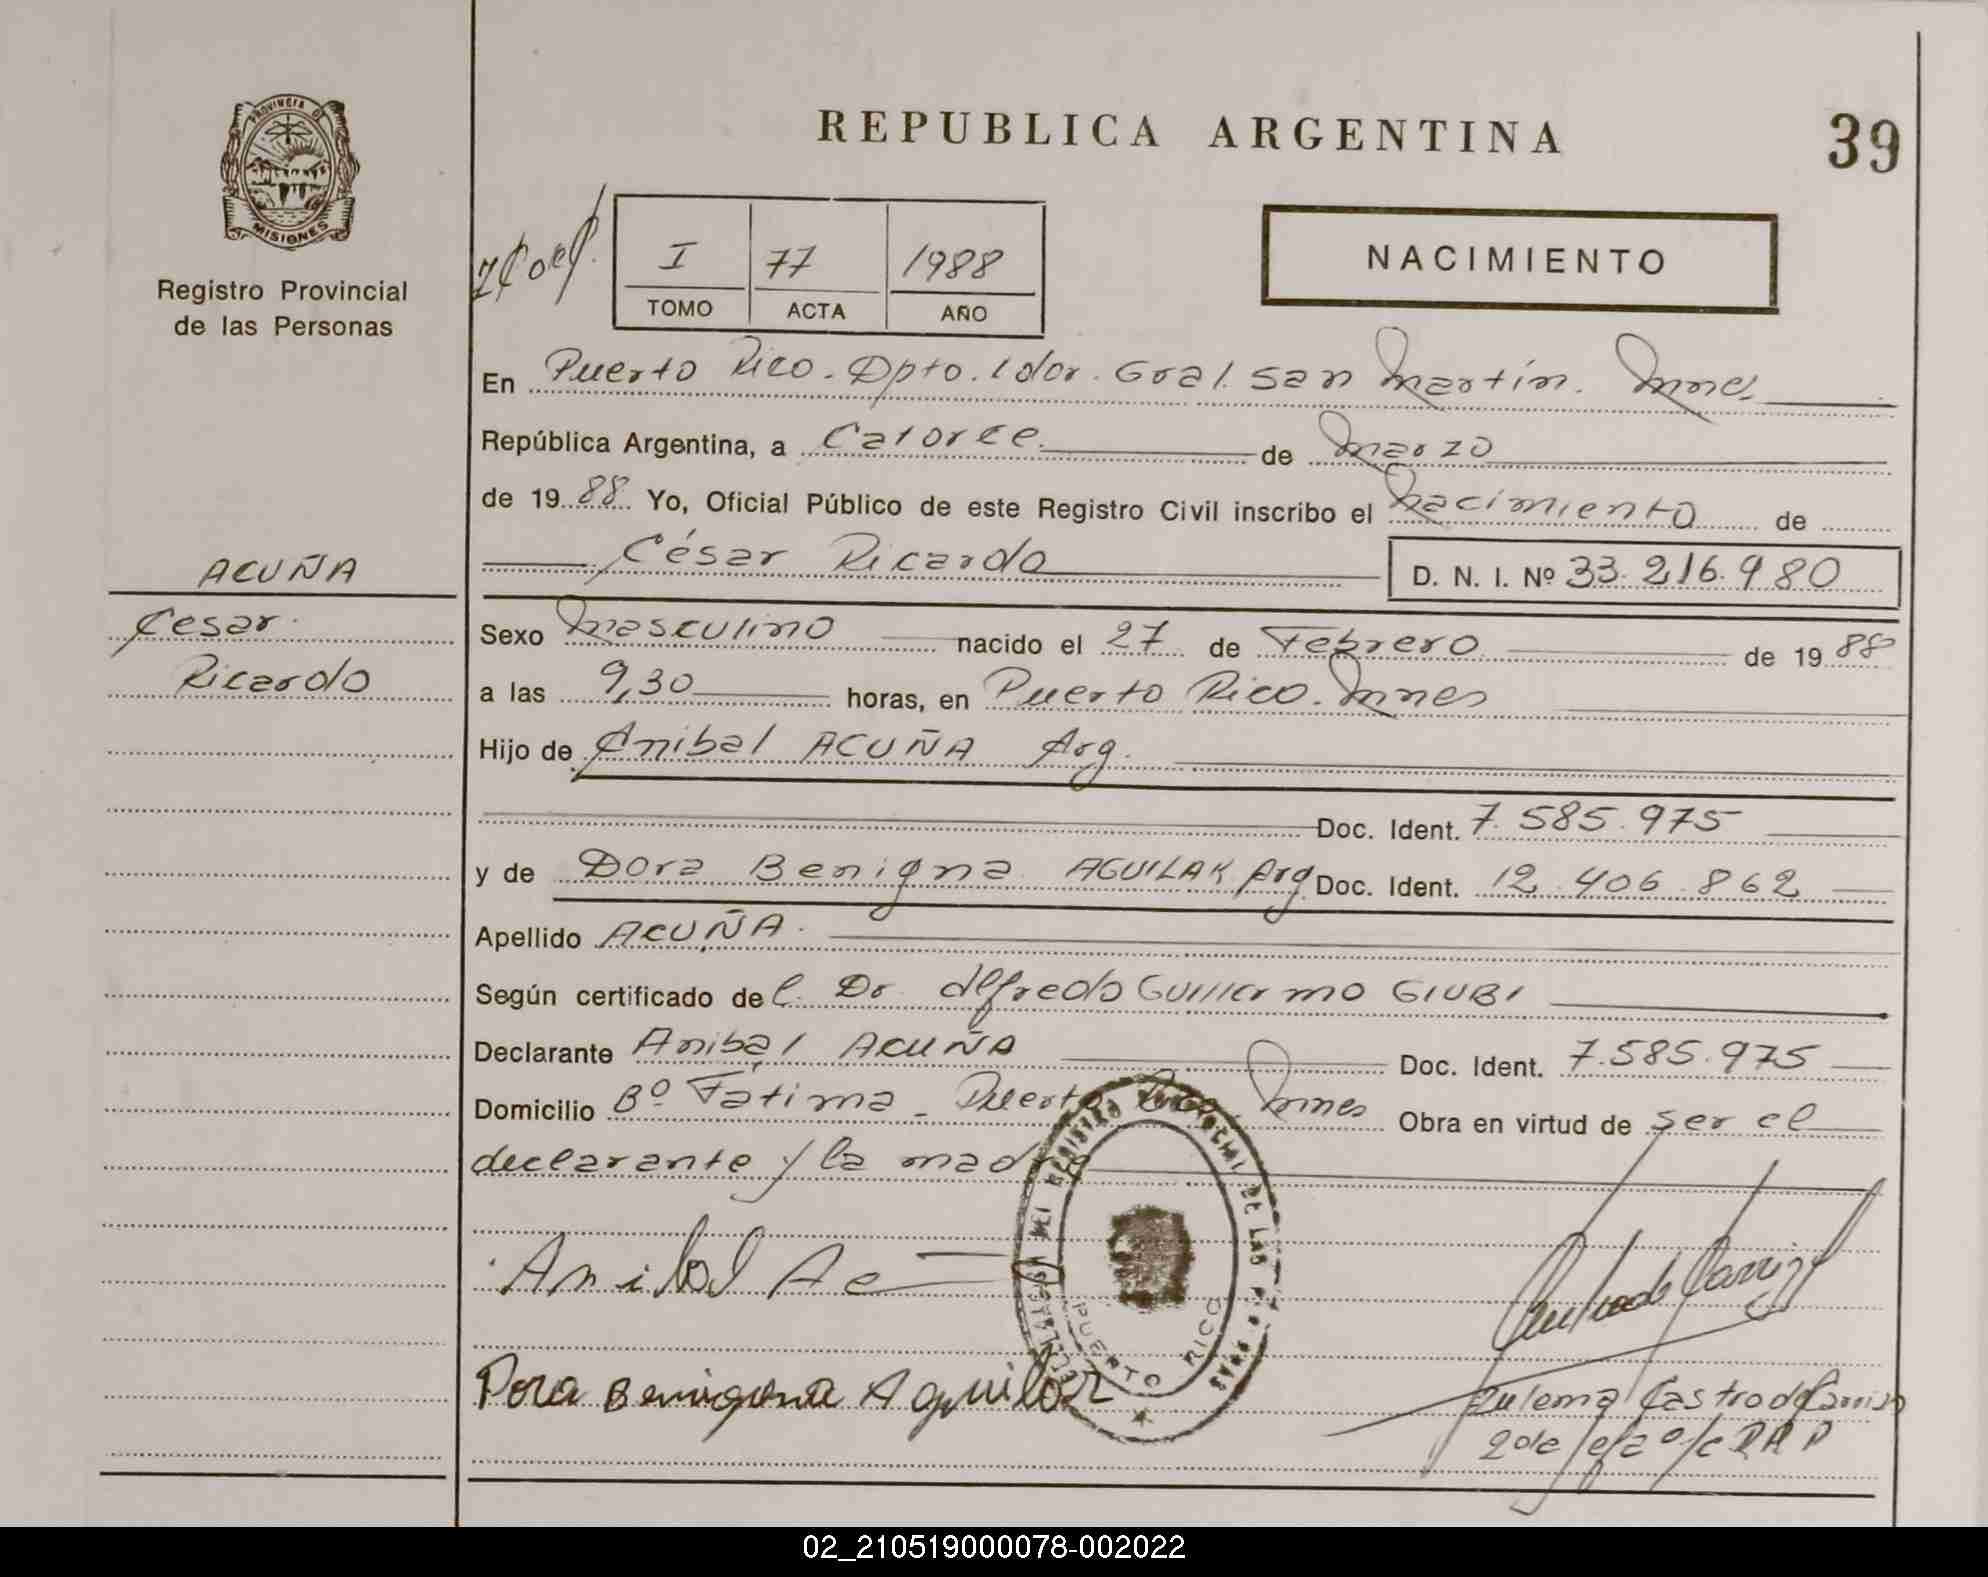 PROVINCIA DE
MISIONES
Registro Provincial
de las Personas
REPUBLICA ARGENTINA
39
I 77 1988
TOMO ACTA AÑO
NACIMIENTO
En Puerto Rico. Dpto. Ldor. Gral. San Martín. Mnes
República Argentina, a Catorce de Marzo
de 19 88 Yo, Oficial Público de este Registro Civil inscribo el Nacimiento de
César Ricardo D. N. I. Nº 33.216.980
ACUÑA
Cesar
Ricardo
Sexo Masculino nacido el 27 de Febrero de 19 88
a las 9,30 horas, en Puerto Rico. Mnes
Hijo de Anibal ACUÑA Arg.
Doc. Ident. 7.585.975
y de Dora Benigna AGUILAR Arg. Doc. Ident. 12.406.862
Apellido ACUÑA.
Según certificado de l. Dr. Alfredo Guillermo GIUBI
Declarante Anibal ACUÑA Doc. Ident. 7.585.975
Domicilio Bº Fátima - Puerto Rico. Mnes Obra en virtud de ser el
declarante y la madre
Anibal Ac
DEL REGISTRO PROVINCIAL DE LAS PERSONAS
PUERTO RICO
Dora Benigna Aguilar
Zulema Castro de Carrizo
02_210519000078-002022